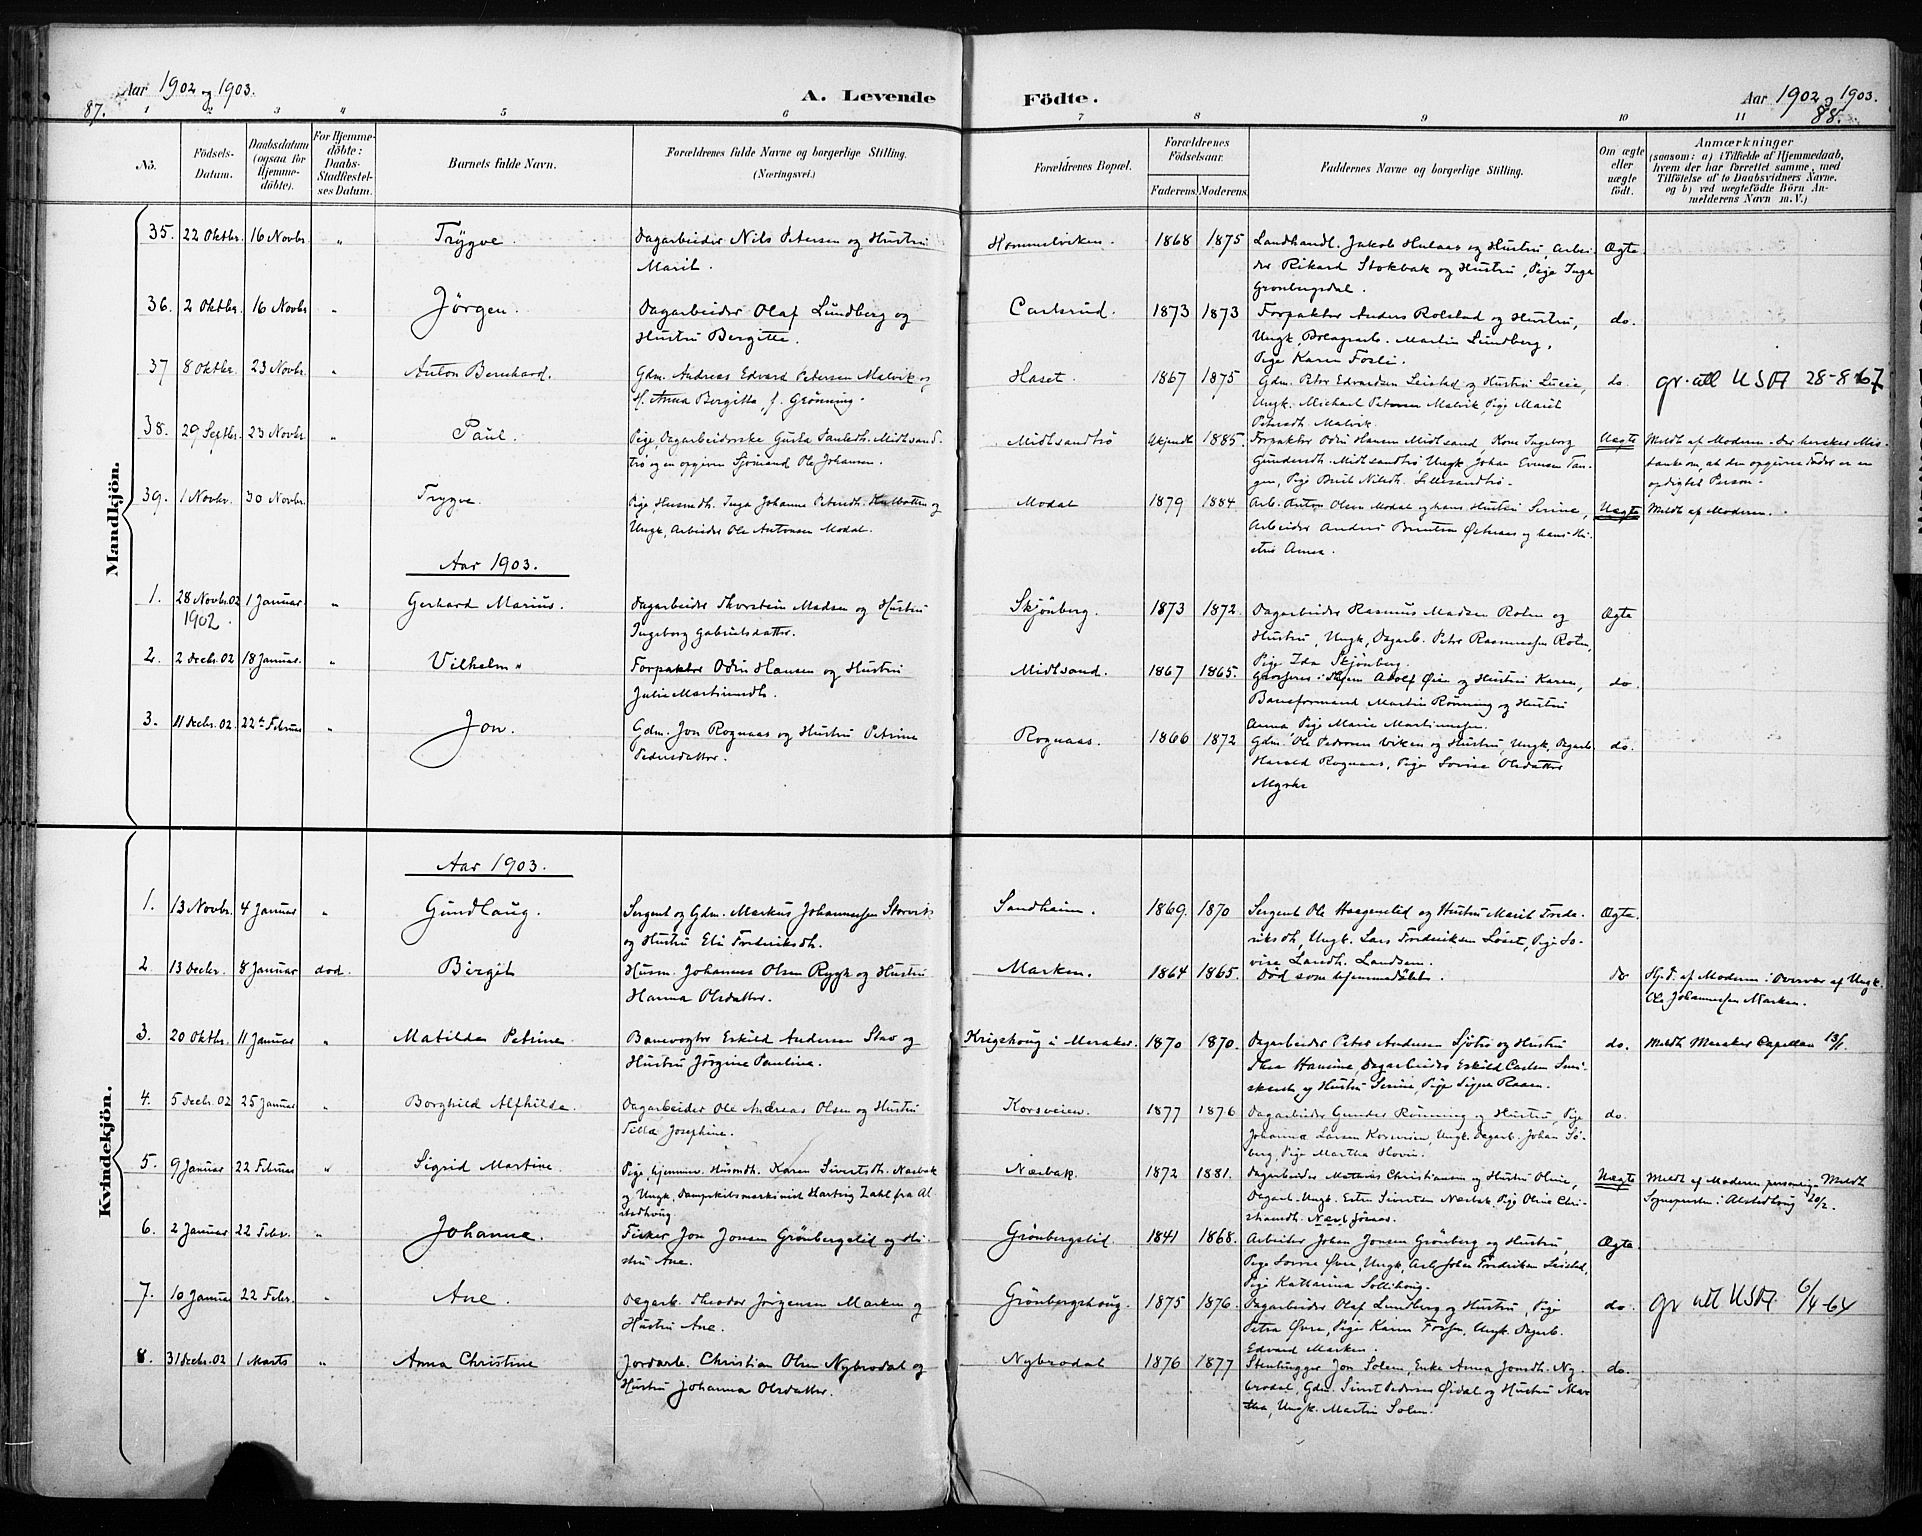 87. Aar 1902 og 1903. A. Levende Födte. Aar 1902 og 1903. 88.
1 2 3 4 5 6 7 8 9 10 11
No. Födsels-Datum. Daabsdatum (ogsaa for Hjemmedöbte). For Hjemmedöbte: Daabs-Stadfæstelses Datum. Barnets fulde Navn. Forældrenes fulde Navne og borgerlige Stilling. (Næringsvei.) Forældrenes Bopæl. Forældrenes Födselsaar. Faderens. Moderens. Faddernes Navne og borgerlige Stilling. Om ægte eller uægte födt. Anmærkninger (saasom: a) i Tilfælde af Hjemmedaab, hvem der har forrettet samme, med Tilföielse af to Daabsvidners Navne. og b) ved uægtefödte Börn Anmelderens Navn m. V.)
Mandkjön.
35. 22 Oktbr. 16 Novbr. " Trygve. Dagarbeider Nils Petersen og Hustru Hommelviken. 1868 1875 Landhandl. Jakob Hulaas og Hustru, Arbei- Ægte
Marit. der Rikard Stokbak og Hustru, Pige Inga
Grønbergsdal.
36. 2 Oktbr. 16 Novbr " Jörgen. Dagarbeider Olaf Lundberg og Carlsrud. 1873 1873 Forpakter Anders Rolstad og Hustru, do.
Hustru Bergitte. Ungk. Martin Lundberg,
Pige Karen Fosli.
37 8 Oktbr. 23 Novbr. " Anton Bernhard. Gdm. Andreas Edvard Petersen Malvik og Haset. 1867 1875 Gdm. Peter Edvardsen Leistad og Hustru Lucie, do. gr. att USA 28-8-67
H. Anna Bergitta f. Grønning. Ungk. Michael Petersen Malvik Pige Marit
Petersdt. Malvik.
38. 29 Septbr. 23 Novbr. " Paul. Pige, Dagarbeiderske Gusta Paulsdt. Midtsand- Midtsandtrø 1885. Forpakter Odin Hansen Midtsand, Kone Ingeborg Uægte Meldt af Moderen. Der hersker Mis-
trø og en opgiven Sjömand Ole Johansen. Gundersdt. Midtsandtrø Ungk. Johan Evensen Tan- tanke om, at den opgivne Fader er en
gen, Pige Berit Nilsdt. opdigtet Person.
39. 1 Novbr. 30 Novbr. Trygve. Pige, Husmdt. Inga Johanne Petersdt. og Modal 1879 1884 Arb. Anton Olsen Modal og hans Hustru Serine, Uægte Meldt af Moderen.
Ungk. Arbeider Ole Antonsen Modal. Arbeider Anders og hans Hu-
stru Anna.
Aar 1903.
1. 28 Novbr. 02 1 Januar. " Gerhard Marius. Dagarbeider Thorstein Madsen og Hustru Skjönberg. 1873 1872. Dagarbeider Rasmus Madsen Roten og Ægte
1902. Ingeborg Gabrielsdatter. Hustru, Ungk. Dagarb. Peter Rasmussen Roten,
Pige Ida Skjönberg.
2. 2 Decbr. 02 18 Januar. " Vilhelm " Forpakter Odin Hansen og Hustru Midtsand. 1867 1865. Adolf Øien og Hustru Karen, do.
Julie Martinusdt. Baneformand Martin Rønning og Hustru
Anna, Pige Marie Martinussen.
3. 11 Decbr. 02 22de Februar " Jon. Gdm. Jon Rognaas og Hustru Petrine Rognaas. 1866 1872 Gdm. Ole Pedersen Viken og Hustru, Ungk. Dagarb. do.
Pedersdatter. Harald Rognaas, Pige Olsdatter
Myrhe
Kvindekjön.
Aar 1903.
1. 13 Novbr. 4 Januar " Gudlaug. Sergent og Gdm. Markus Johannessen Storvik Sandheim. 1869. 1870 Sergent Ole Haagenstad og Hustru Marit Frede- Ægte.
og Hustru Eli Frederiksdt. riksdt, Ungk. Lars Frederiksen Løset, Pige Lo-
vise Landsem.
2. 13 Decbr. 8 Januar död. Birgit Husm. Johannes Olsen Rygh og Hustru Marken. 1864 1865. Död som hjemmedöbt. do Hj.d. af Moderen i Overvær af Ungk.
Hanna Olsdatter. Ole Johannessen Marken.
3. 20 Oktbr. 11 Januar " Matilda Petrine. Banevogter Eskild Andersen Stav og Krigshoug i Meraker. 1870 1870. Dagarbeider Peter Andersen Sjötrø og Hustru do. Meldt Meraker Capellan 13/1.
Hustru Jörgine Pauline. Thea Hansine, Dagarbeider Eskild Carlsen
og Hustru Serine, Pige Signe Raaen.
4. 5 Decbr. 02 25 Januar " Borghild Alfhilda. Dagarbeider Ole Andreas Olsen og Hustru Korsveien. 1877 1876 Dagarbeider Gunder Rønning og Hustru, Pige do.
Josephine. Johanna Larsen Korsveien, Ungk. Dagarb. Johan Sø-
berg, Pige Martha Hovin.
5. 9 Januar 22 Februar " Sigrid Martine. Pige, hjemmev. Husmdt. Karen Sivertsdt. Næsbak Næsbak 1872 1881. Dagarbeider Mathias Christiansen og Hustru Oline, Uægte Meldt af Moderen personlig. Meldt
og Ungk. Hartvig Zahl fra Al- Dagarb. Ungk. Sivertsen Næsbak, Pige Oline Chri- Sognepresten i Alstadhoug 20/2.
stadhoug stiansdt.
6. 2 Januar 22 Febr. " Johanne. Fisker Jon Jonsen Grönbergslid og Hu- Grönbergslid 1841 1868. Arbeider Johan Jonsen Grönberg og Hustru, Ægte.
stru Ane. Pige Øvre, Ungk. Arb. Johan Fredriksen Leistad,
Pige Katharina Sollihoug.
7. 10 Januar 22 Febr. " Ane. Dagarb. Theodor Jörgensen Marken og Grönbergshoug. 1875 1876. Dagarbeider Olaf Lundberg og Hustru, Pige do. gr att USA. 6/4-64
Hustru Ane. Petra Øvre, Pige Karen Ungk. Dagarb.
Edvard Marken.
8. 31 Decbr. 02 1 Marts " Anna Christine Jordarb. Christian Olsen Nybrodal og Nybrodal 1876 1877 Stenhugger Jon Solem, Enke Anna Jonsdt. Ny- do.
Hustru Johanna Olsdatter. brodal, Gdm. Sivert Pedersen og Hustru Mar-
tha, Ungk. Martin Solem.